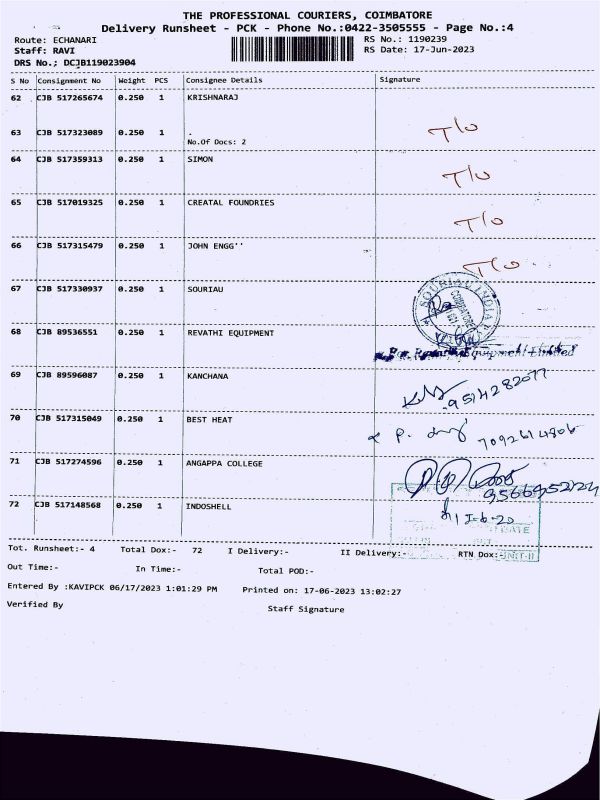 THE PROFESSIONAL COURIERS, COIMBATORE
Delivery Runsheet - PCK - Phone No.:0422-3505555 - Page No.:4
Route: ECHANARI RS No.: 1190239
Staff: RAVI RS Date: 17-Jun-2023
DRS No.; DCJB119023904
S No Consignment No Weight PCS Consignee Details Signature
62 CJB 517265674 0.250 1 KRISHNARAJ
63 CJB 517323089 0.250 1 . T/o
No.Of Docs: 2
64 CJB 517359313 0.250 1 SIMON T/o
65 CJB 517019325 0.250 1 CREATAL FOUNDRIES T/o
66 CJB 517315479 0.250 1 JOHN ENGG'' T/o
67 CJB 517330937 0.250 1 SOURIAU SOURIAU INDIA COIMBATORE
68 CJB 89536551 0.250 1 REVATHI EQUIPMENT
For Revathi Equipment Limited
69 CJB 89596087 0.250 1 KANCHANA 9514282077
70 CJB 517315049 0.250 1 BEST HEAT P. 7092614806
71 CJB 517274596 0.250 1 ANGAPPA COLLEGE
72 CJB 517148568 0.250 1 INDOSHELL
DATE
UNIT-II
Tot. Runsheet:- 4 Total Dox:- 72 I Delivery:- II Delivery:- RTN Dox:-
Out Time:- In Time:- Total POD:-
Entered By :KAVIPCK 06/17/2023 1:01:29 PM Printed on: 17-06-2023 13:02:27
Verified By Staff Signature